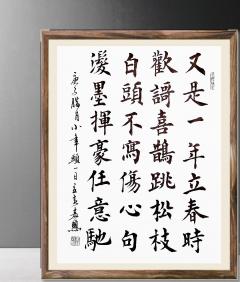 又是一年立春時
歡謌喜鵲跳松枝
白頭不寫傷心句
潑墨揮豪任意馳
庚子臘月小年頭一日